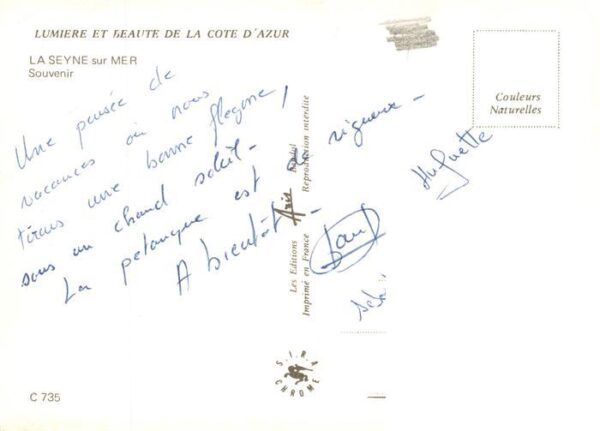 LUMIERE ET BEAUTE DE LA COTE D'AZUR
LA SEYNE sur MER
Souvenir
Une pensée de
vacances où nous
tirons une bonne flegme,
sous un chaud soleil -
La pétanque est de rigueur -
A bientôt -
Huguette
Couleurs
Naturelles
Les Editions Aris
Imprimé en France
Reproduction interdite
S.I.R.A.
CHROME
C 735